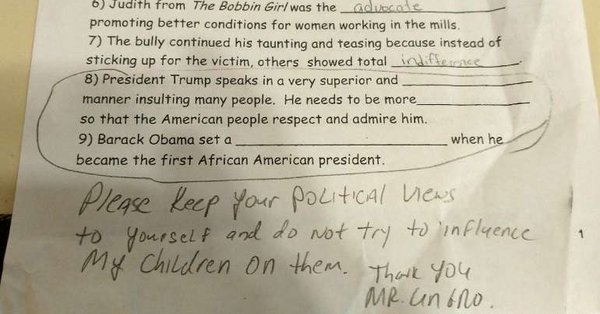 6) Judith from The Bobbin Girl was the advocate
promoting better conditions for women working in the mills.
7) The bully continued his taunting and teasing because instead of
sticking up for the victim, others showed total indifference.
8) President Trump speaks in a very superior and ____________
manner insulting many people. He needs to be more____________
so that the American people respect and admire him.
9) Barack Obama set a ____________________ when he
became the first African American president.
Please keep your POLITICAL views
to yourself and do not try to influence
My Children on them. Thank you
MR.
1